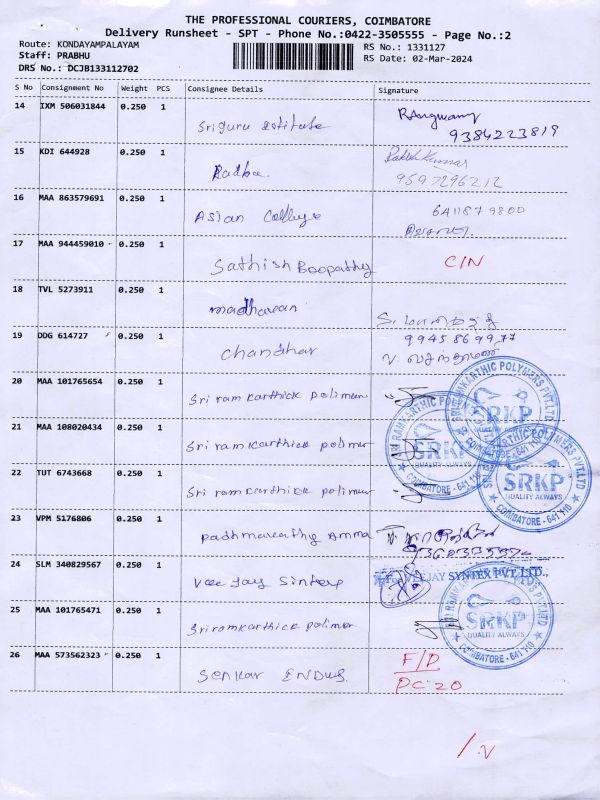 THE PROFESSIONAL COURIERS, COIMBATORE
Delivery Runsheet - SPT - Phone No.:0422-3505555 - Page No.:2
Route: KONDAYAMPALAYAM
RS No.: 1331127
Staff: PRABHU
RS Date: 02-Mar-2024
DRS No.: DCJB133112702
S No Consignment No Weight PCS Consignee Details Signature
14 IXM 506031844 0.250 1
Sriguru
9384223819
15 KDI 644928 0.250 1
Radha
9597296212
16 MAA 863579691 0.250 1
Asian College
6411879800
17 MAA 944459010 0.250 1
Sathish Boopathy C/N
18 TVL 5273911 0.250 1
madhavan
19 DDG 614727 0.250 1
Chandhar
9945869977
20 MAA 101765654 0.250 1
Sri ram karthick polimer
21 MAA 108020434 0.250 1
Sri ram karthick polimer
22 TUT 6743668 0.250 1
Sri ram karthick polimer
SRKP
QUALITY ALWAYS
COIMBATORE - 641 110
23 VPM 5176806 0.250 1
Padhmavathy Amma
24 SLM 340829567 0.250 1
Vee Jay Sintex
For VEEJAY SYNTEX PVT. LTD.,
25 MAA 101765471 0.250 1
Sriramkarthick polimer
SRKP
QUALITY ALWAYS
COIMBATORE - 641 110
26 MAA 573562323 0.250 1
F/D
DC 20